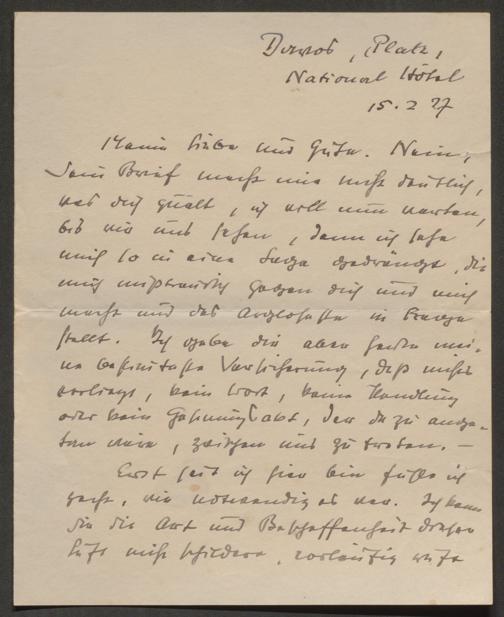 Davos, Platz,
National Hôtel
15. 2 27
Meine Liebe und Gute. Nein,
Dein Brief macht mir nicht deutlich,
was dich quält, ich will nun warten,
bis wir uns sehen, denn ich sehe
mich so in eine Enge gedrängt, die
mich misstrauisch gegen dich und mich
macht und das in Frage
stellt. Ich gebe dir aber heute mei-
ne Versicherung, daß nichts
vorliegt, kein Wort, keine Handlung
oder kein, der dazu angе-
tan wäre, zwischen uns zu treten. –
Erst seit ich hier bin fühle ich
recht, wie notwendig es war. Ich kann
dir die Art und Beschaffenheit dieser
Luft nicht schildern, vorläufig